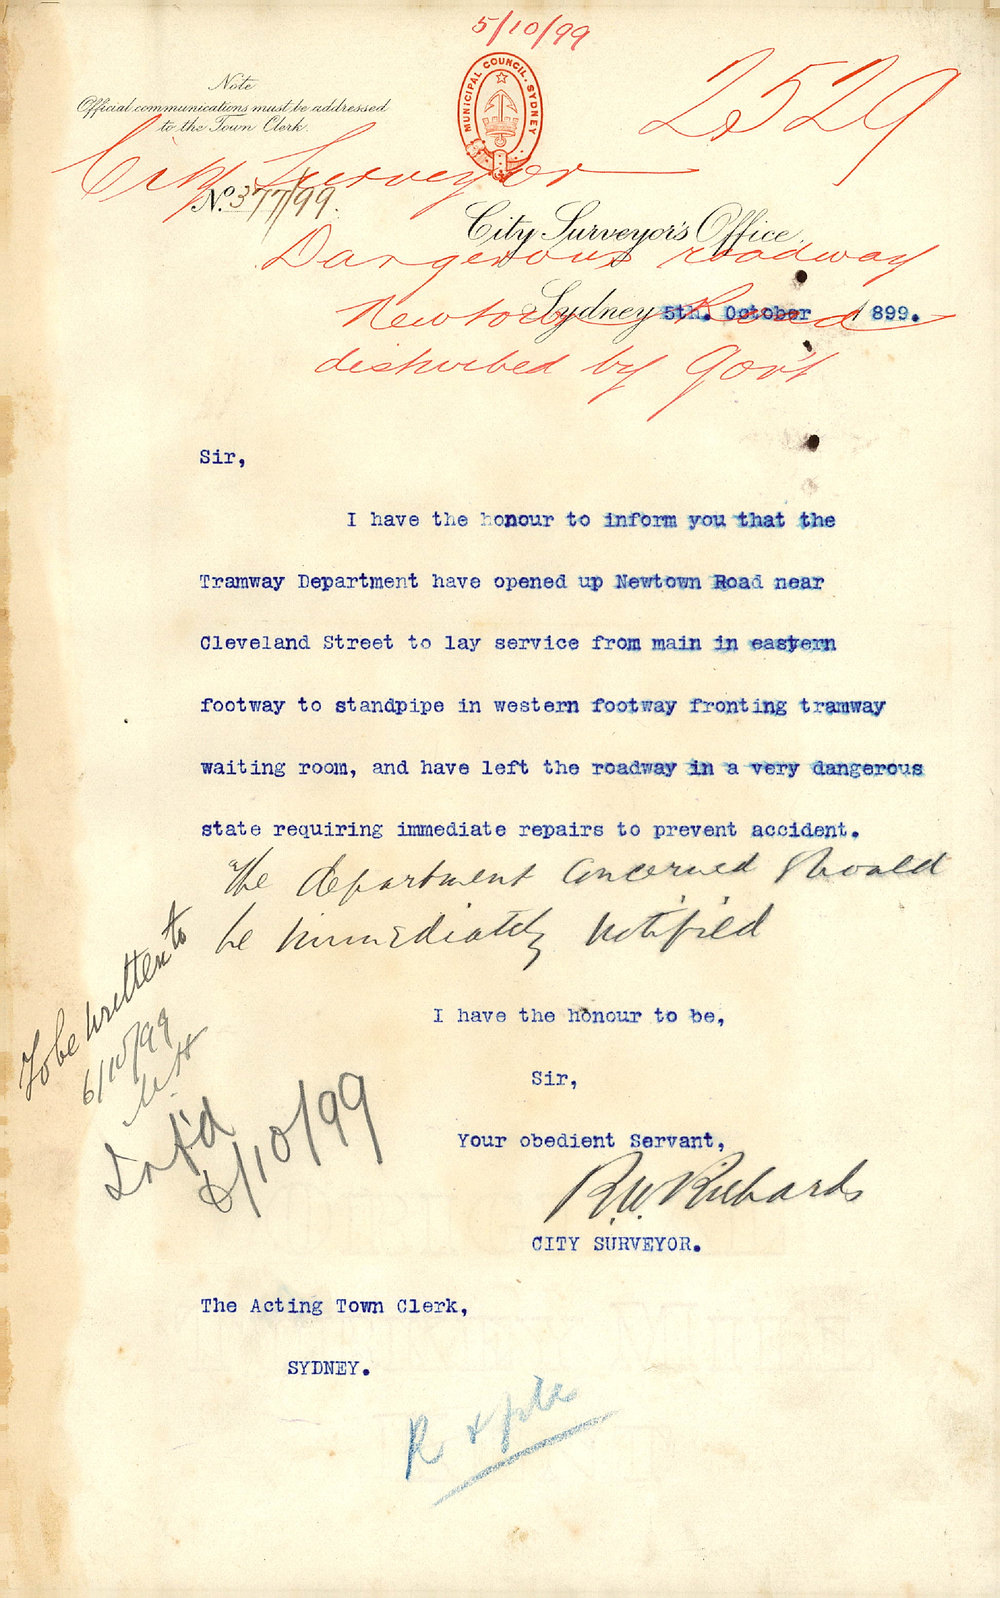 5/10/99
2529
Note
Official communications must be addressed
to the Town Clerk.
MUNICIPAL COUNCIL. SYDNEY
City Surveyor
No. 377/99.
City Surveyor's Office,
Dangerous roadway
Sydney 5th. October 1899.
Newtown Road
disturbed by Gov't
Sir,
I have the honour to inform you that the
Tramway Department have opened up Newtown Road near
Cleveland Street to lay service from main in eastern
footway to standpipe in western footway fronting tramway
waiting room, and have left the roadway in a very dangerous
state requiring immediate repairs to prevent accident.
The department concerned should
be immediately notified
To be written to
6/10/99
I have the honour to be,
Sir,
Your obedient Servant,
R.W. Richards
CITY SURVEYOR.
6/10/99
The Acting Town Clerk,
SYDNEY.
R &